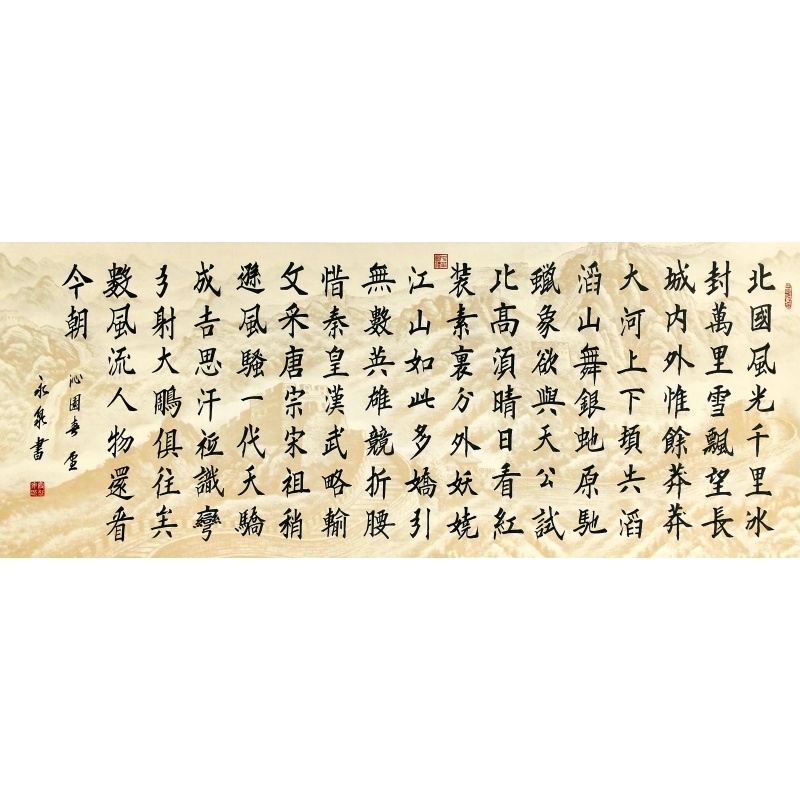 北國風光千里冰
封萬里雪飄望長
城内外惟餘莽莽
大河上下頓失滔
滔山舞銀蛇原馳
蠟象欲與天公試
比高須晴日看紅
装素裹分外妖嬈
江山如此多嬌引
無數英雄競折腰
惜秦皇漢武略輸
文采唐宗宋祖稍
遜風騷一代天驕
成吉思汗祗識彎
弓射大鵰俱往矣
數風流人物還看
今朝
沁園春雪
永泉書